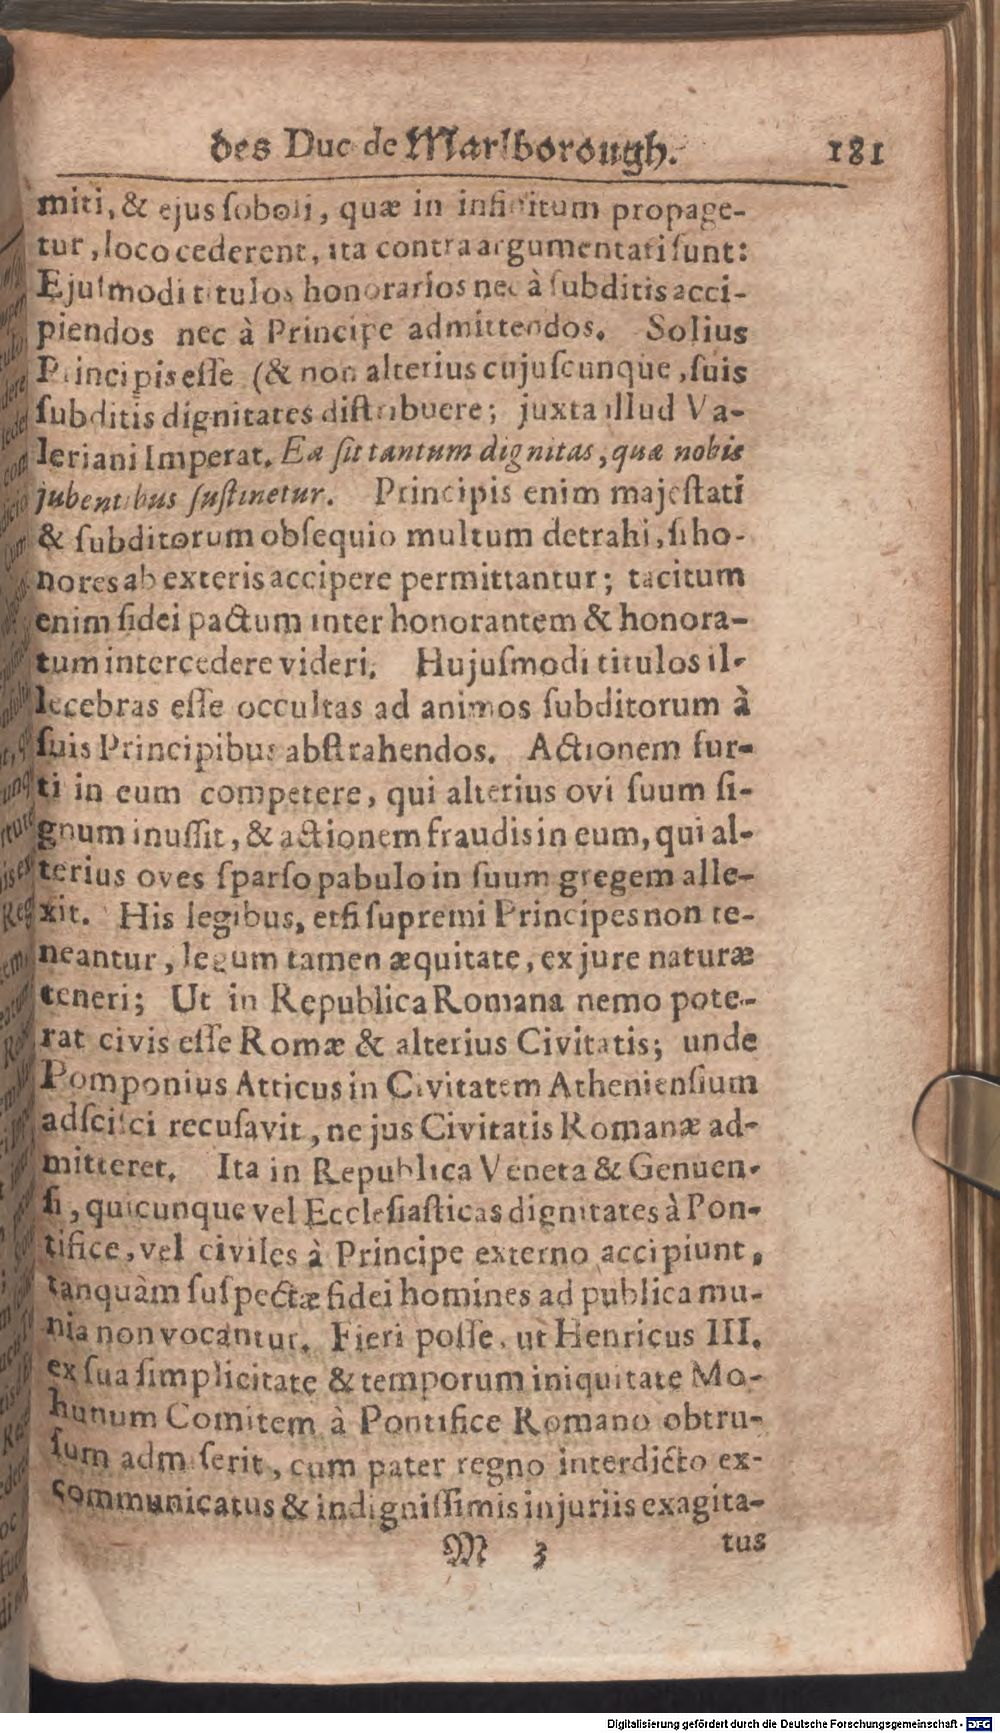 des Duc de Marlborough. 181
miti, & ejus ſoboli, quæ in infinitum propage-
tur, loco cederent, ita contra argumentati ſunt:
Ejuſmodi titulos honorarios nec à ſubditis acci-
piendos nec à Principe admittendos. Solius
Principis eſſe (& non alterius cujuſcunque, ſuis
ſubditis dignitates diſtribuere; juxta illud Va-
leriani Imperat. Ea ſit tantum dignitas, quæ nobis
jubentibus ſuſtinetur. Principis enim majeſtati
& ſubditorum obſequio multum detrahi, ſi ho-
nores ab exteris accipere permittantur; tacitum
enim fidei pactum inter honorantem & honora-
tum intercedere videri. Hujuſmodi titulos il-
lecebras eſſe occultas ad animos ſubditorum à
ſuis Principibus abſtrahendos. Actionem fur-
ti in eum competere, qui alterius ovi ſuum ſi-
gnum inuſſit, & actionem fraudis in eum, qui al-
terius oves ſparſo pabulo in ſuum gregem alle-
xit. His legibus, etſi ſupremi Principes non te-
neantur, legum tamen æquitate, ex jure naturæ
teneri; Ut in Republica Romana nemo pote-
rat civis eſſe Romæ & alterius Civitatis; unde
Pomponius Atticus in Civitatem Athenienſium
adſciſci recuſavit, ne jus Civitatis Romanæ ad-
mitteret. Ita in Republica Veneta & Genuen-
ſi, quicunque vel Eccleſiaſticas dignitates à Pon-
tifice, vel civiles à Principe externo accipiunt,
tanquàm ſuſpectæ fidei homines ad publica mu-
nia non vocantur. Fieri poſſe, ut Henricus III.
ex ſua ſimplicitate & temporum iniquitate Mo-
hunum Comitem à Pontifice Romano obtru-
ſum admiſerit, cum pater regno interdicto ex-
communicatus & indigniſſimis injuriis exagita-
M 3 tus
Digitalisierung gefördert durch die Deutsche Forschungsgemeinschaft - DFG